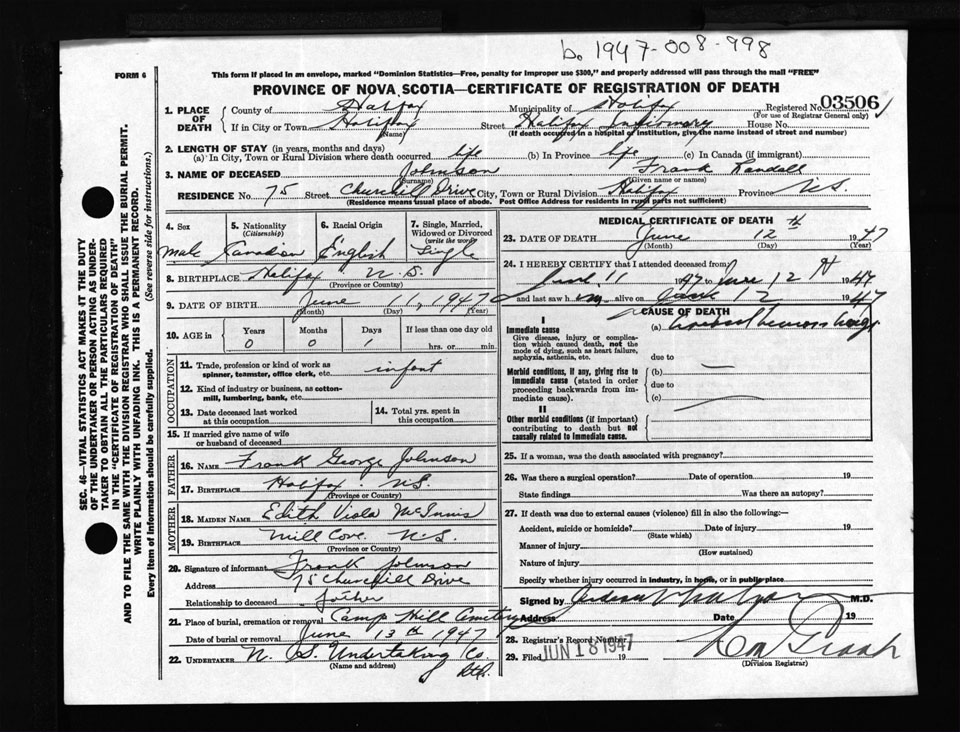 b. 1947-008-998
FORM 6
This form if placed in an envelope, marked "Dominion Statistics—Free, penalty for improper use $300," and properly addressed will pass through the mail "FREE"
PROVINCE OF NOVA SCOTIA—CERTIFICATE OF REGISTRATION OF DEATH
1. PLACE OF DEATH
County of Halifax Municipality of Halifax Registered No. 03506
(For use of Registrar General only)
If in City or Town Halifax Street Halifax Infirmary House No.
(Name) (If death occurred in a hospital or institution, give the name instead of street and number)
2. LENGTH OF STAY (in years, months and days)
(a) In City, Town or Rural Division where death occurred life (b) In Province life (c) In Canada (if immigrant)
3. NAME OF DECEASED Johnson Frank Randall
(Surname) (Given name or names)
RESIDENCE No. 75 Street Churchill Drive City, Town or Rural Division Halifax Province N.S.
(Residence means usual place of abode. Post Office Address for residents in rural parts not sufficient)
SEC. 46—VITAL STATISTICS ACT MAKES IT THE DUTY
OF THE UNDERTAKER OR PERSON ACTING AS UNDER-
TAKER TO OBTAIN ALL THE PARTICULARS REQUIRED
IN THE "CERTIFICATE OF REGISTRATION OF DEATH"
AND TO FILE THE SAME WITH THE DIVISION REGISTRAR WHO SHALL ISSUE THE BURIAL PERMIT.
WRITE PLAINLY WITH UNFADING INK. THIS IS A PERMANENT RECORD.
Every item of information should be carefully supplied. (See reverse side for instructions.)
4. Sex
male
5. Nationality
(Citizenship)
Canadian
6. Racial Origin
English
7. Single, Married,
Widowed or Divorced
(write the word)
Single
8. BIRTHPLACE Halifax N.S.
(Province or Country)
9. DATE OF BIRTH June 11, 1947
(Month) (Day) (Year)
10. AGE in Years Months Days If less than one day old
0 0 1 hrs. or min.
OCCUPATION
11. Trade, profession or kind of work as
spinner, teamster, office clerk, etc. infant
12. Kind of industry or business, as cotton-
mill, lumbering, bank, etc.
13. Date deceased last worked
at this occupation
14. Total yrs. spent in
this occupation
15. If married give name of wife
or husband of deceased
FATHER
16. NAME Frank George Johnson
17. BIRTHPLACE Halifax N.S.
(Province or Country)
MOTHER
18. MAIDEN NAME Edith Viola McInnis
19. BIRTHPLACE Mill Cove N.S.
(Province or Country)
20. Signature of informant Frank Johnson
Address 75 Churchill Drive
Relationship to deceased father
21. Place of burial, cremation or removal Camp Hill Cemetery
Date of burial or removal June 13th 1947
22. UNDERTAKER N. S. Undertaking Co.
Ltd.
(Name and address)
MEDICAL CERTIFICATE OF DEATH
23. DATE OF DEATH June 12th 1947
(Month) (Day) (Year)
24. I HEREBY CERTIFY that I attended deceased from
June 11 1947 to June 12th 1947
and last saw him alive on June 12 1947
CAUSE OF DEATH
I
Immediate cause
Give disease, injury or complica-
tion which caused death, not the
mode of dying, such as heart failure,
asphyxia, asthenia, etc.
(a)
due to
Morbid conditions, if any, giving rise to
immediate cause (stated in order
proceeding backwards from im-
mediate cause).
(b)
due to
(c)
II
Other morbid conditions (if important)
contributing to death but not
causally related to immediate cause.
25. If a woman, was the death associated with pregnancy?
26. Was there a surgical operation? Date of operation 19
State findings Was there an autopsy?
27. If death was due to external causes (violence) fill in also the following:—
Accident, suicide or homicide? Date of injury 19
(State which)
Manner of injury
(How sustained)
Nature of injury
Specify whether injury occurred in industry, in home, or in public place
Signed by M.D.
Address Date 19
28. Registrar's Record Number
29. Filed JUN 18 1947 19
(Division Registrar)